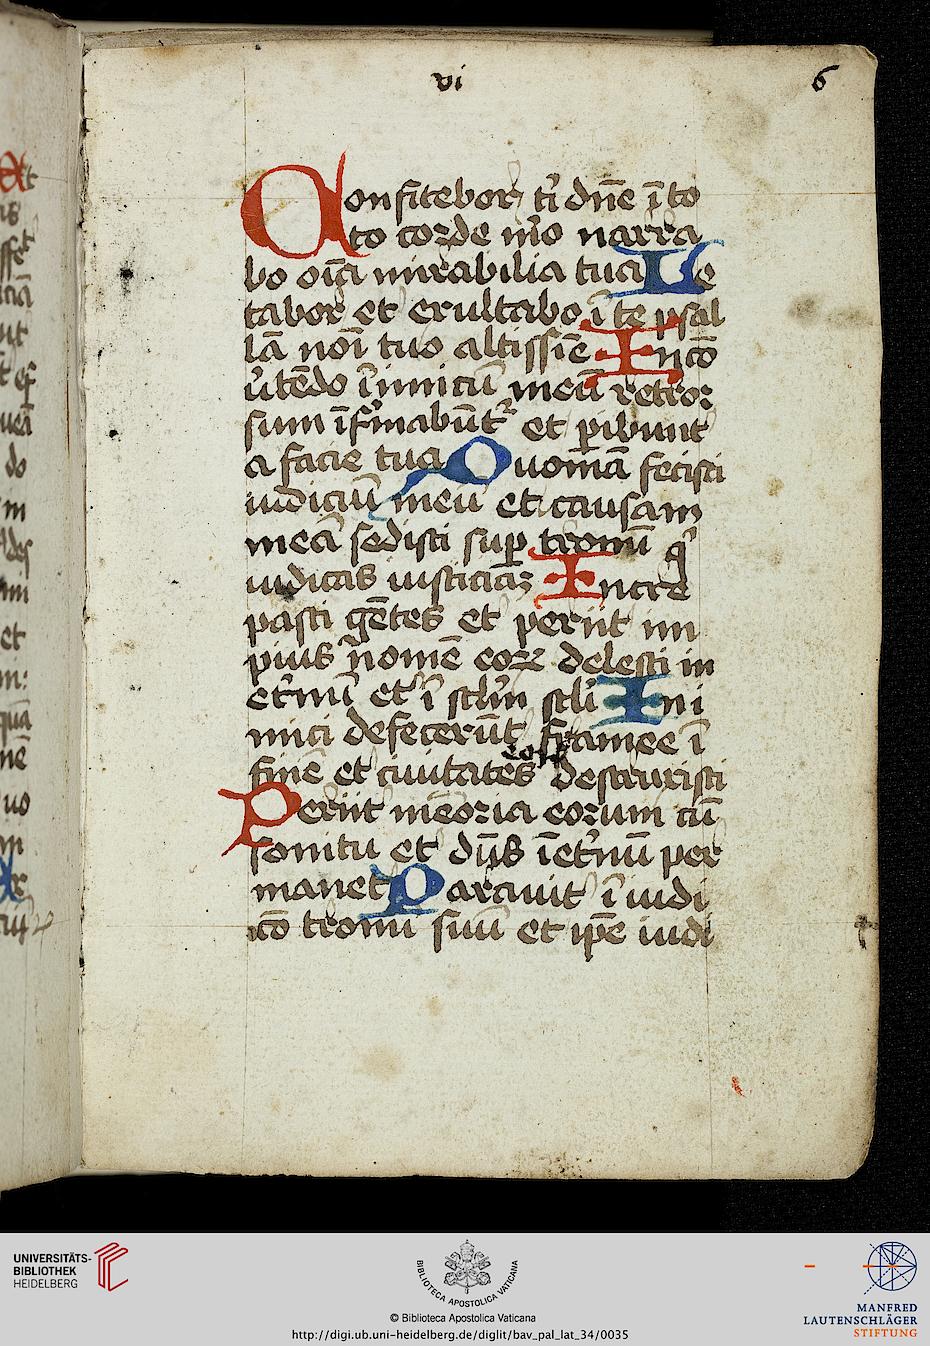 vi
6
Confitebor tỉ dn̄e ī to
to corde m̄o narra
bo oīa mirabilia tua Le
tabor et exultabo ī te psal
lā noī tuo altissīe In cō
ūtēdo īimicū meū retror
sum īfirmabūt᷑ et ꝑibunt
a facie tua Quoniā fecisti
iudiciū meū et causam
meā sedisti suꝑ tronū q̇
iudicas iusticiaꝫ Incre
pasti gētes et periit im
pius nomē eoꝝ delesti in
et̉nū et ī sclm̄ scli Ini
mici defecerūt framee ī
finē et ciuitates eoꝝ destruxisti
Periit mēoria eorum cū
sonitu et dn̄s īet̉nū per
manet Parauit ī iudi
cō tronū suū et ip̄e iudi
UNIVERSITÄTS-
BIBLIOTHEK
HEIDELBERG
BIBLIOTECA APOSTOLICA VATICANA
© Biblioteca Apostolica Vaticana
http://digi.ub.uni-heidelberg.de/diglit/bav_pal_lat_34/0035
MANFRED
LAUTENSCHLÄGER
STIFTUNG